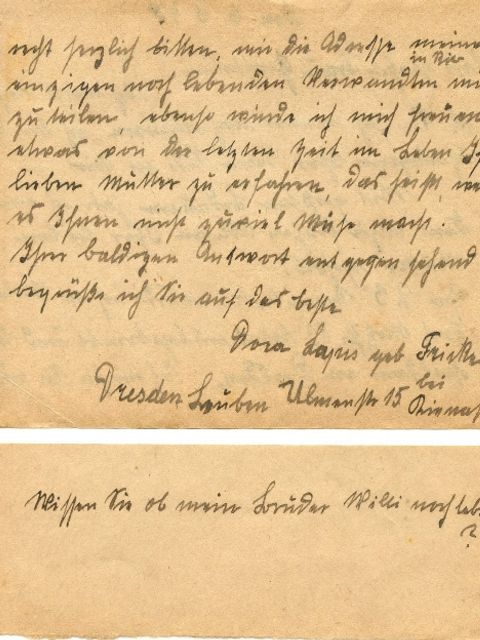 recht herzlich bitten, mir die Adresse meine
in Kiew
einzigen noch lebenden Verwandten mi
zu teilen, ebenso würde ich mich freuen
etwas von der letzten Zeit im Leben Ih
lieben Mutter zu erfahren, das heißt, we
es Ihnen nicht zuviel Mühe macht.
Ihrer baldigen Antwort entgegen sehend
begrüße ich Sie auf das beste
Dora Lapis geb Fricke
Dresden Leuben Ulmenstr 15 bei
Wissen Sie ob mein Bruder Willi noch leb
?